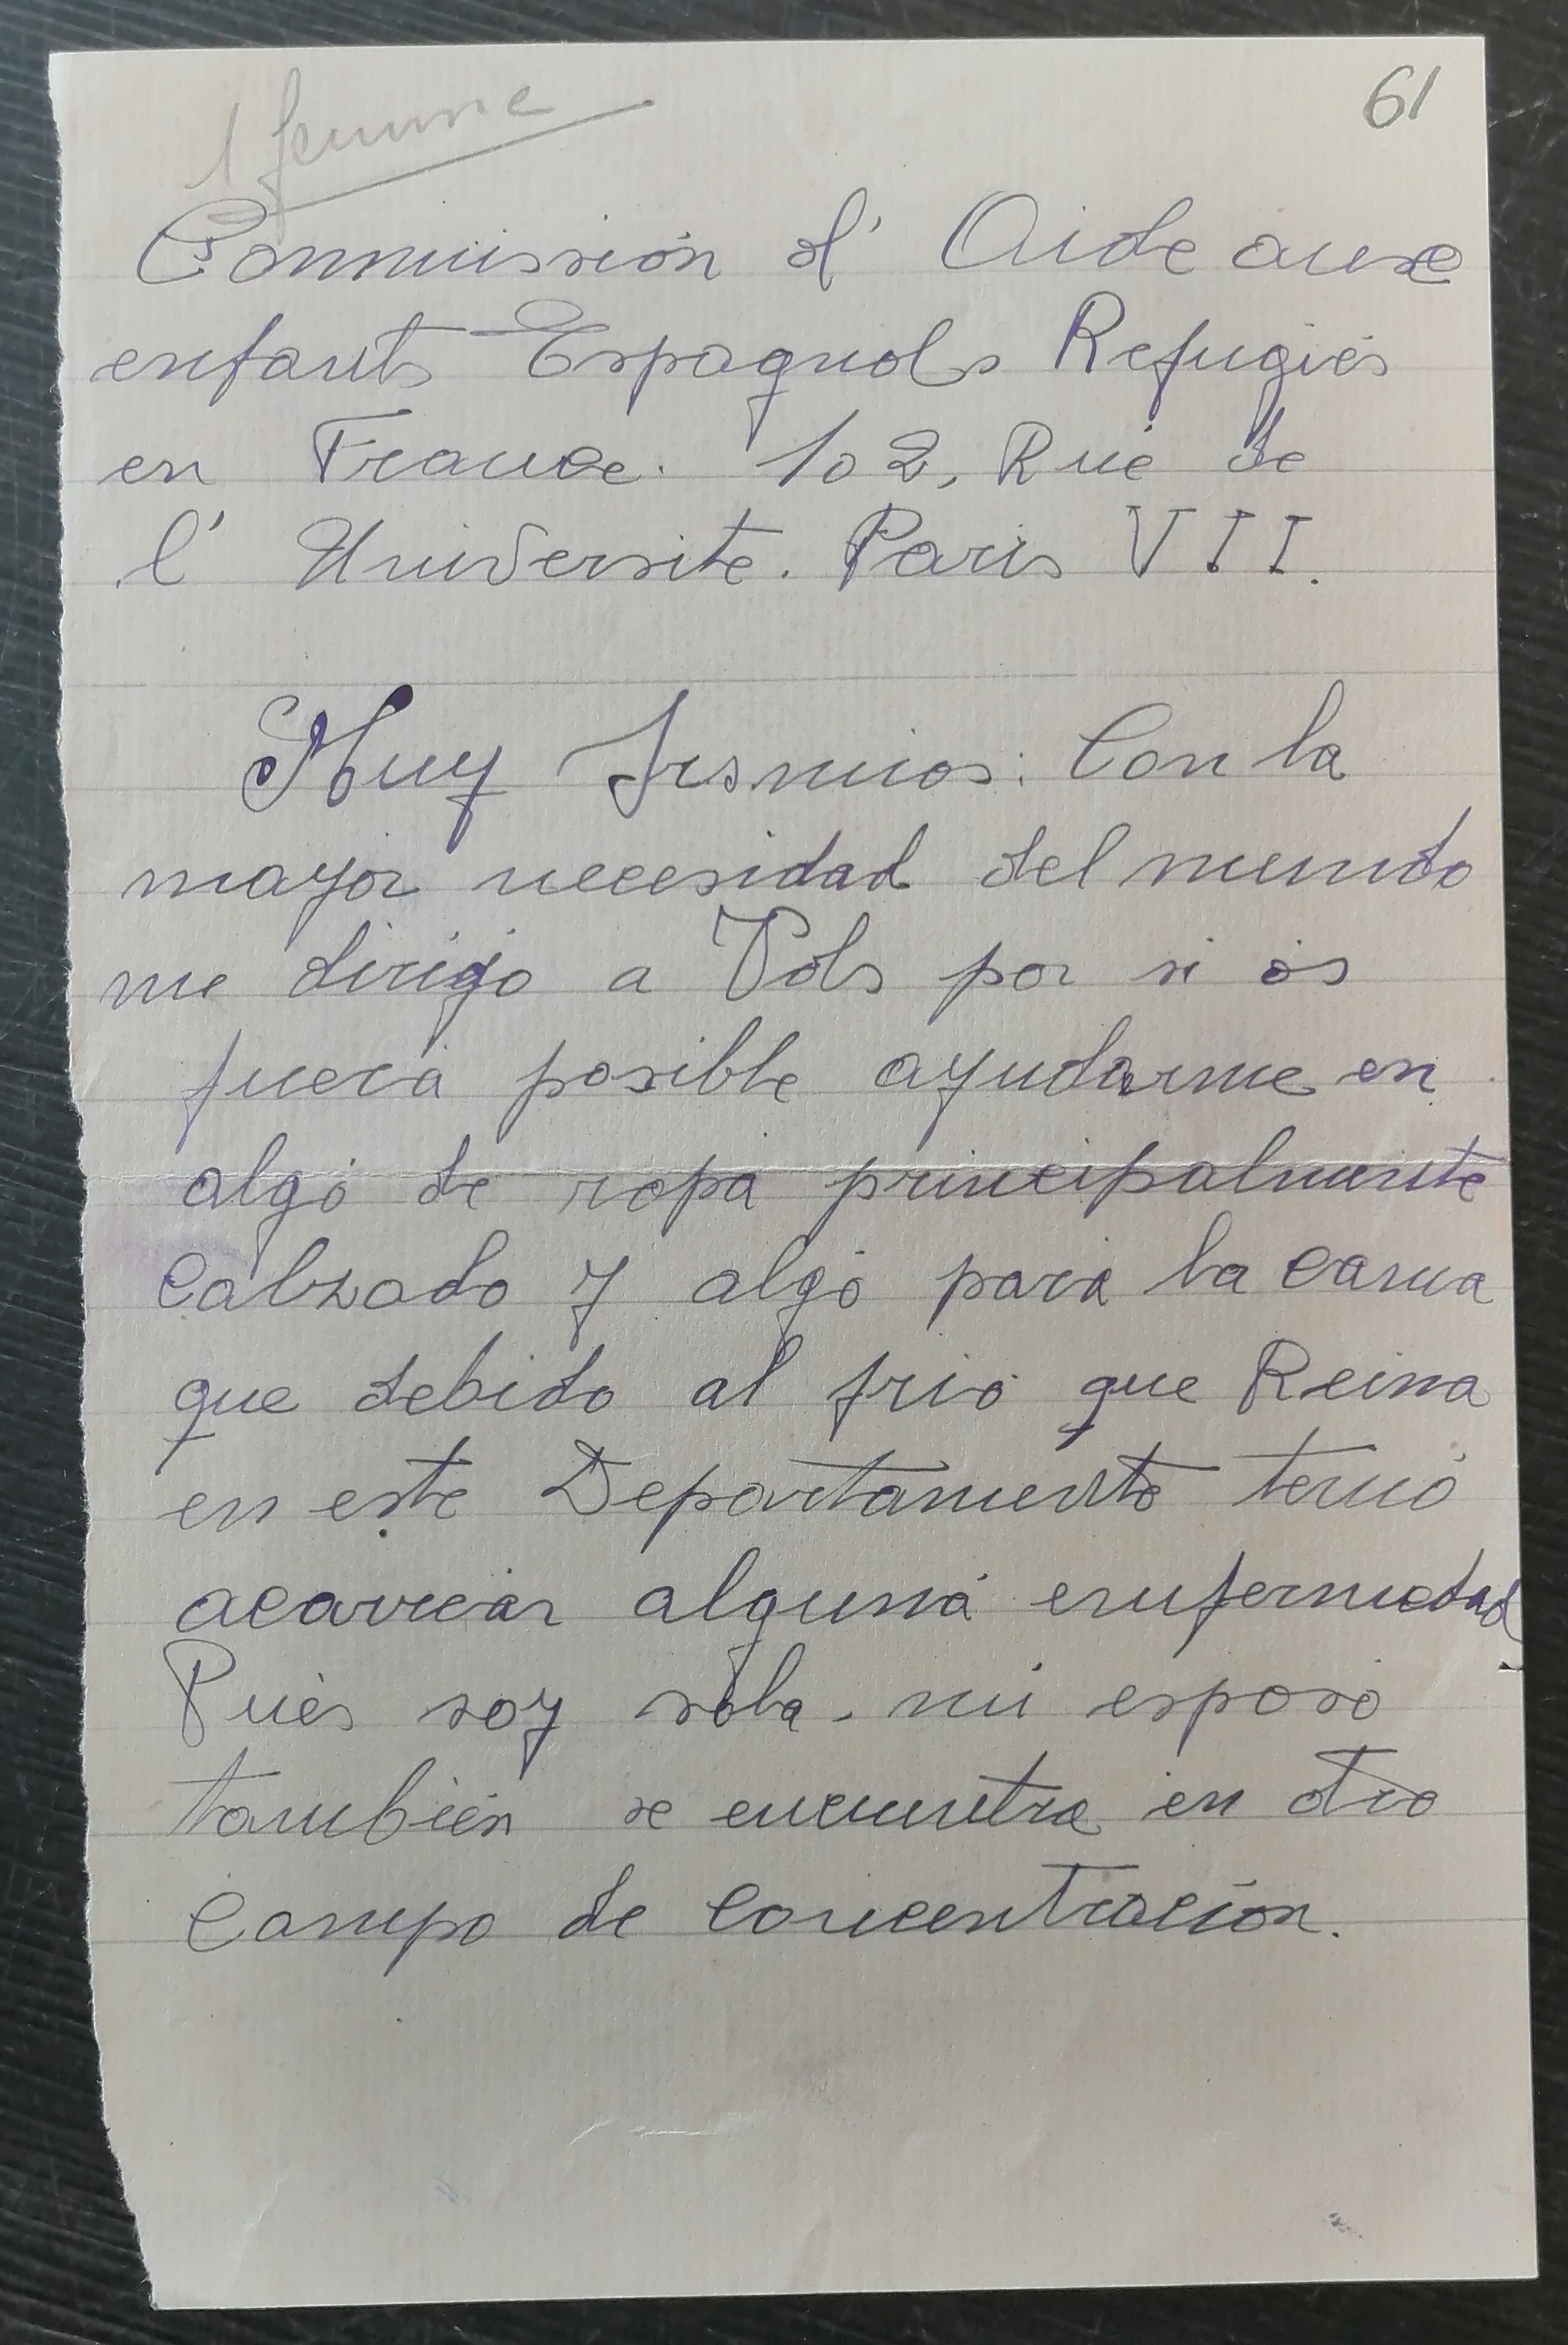 61
1 femme
Commissión d' Aide auxe
enfants Espagnols Refugiés
en France. 102, Rue de
l' Universite. Paris VII.
Muy Srs mios: Con la
mayor necesidad del mundo
me dirijo a Vds por si os
fuera posible ayudarme en
algo de ropa principalmente
calzado y algo para la cama
que debido al frio que Reina
en este Departamento temo
acarrear alguna enfermedad
Pues soy sola, mi esposo
también se encuentra en otro
campo de concentración.